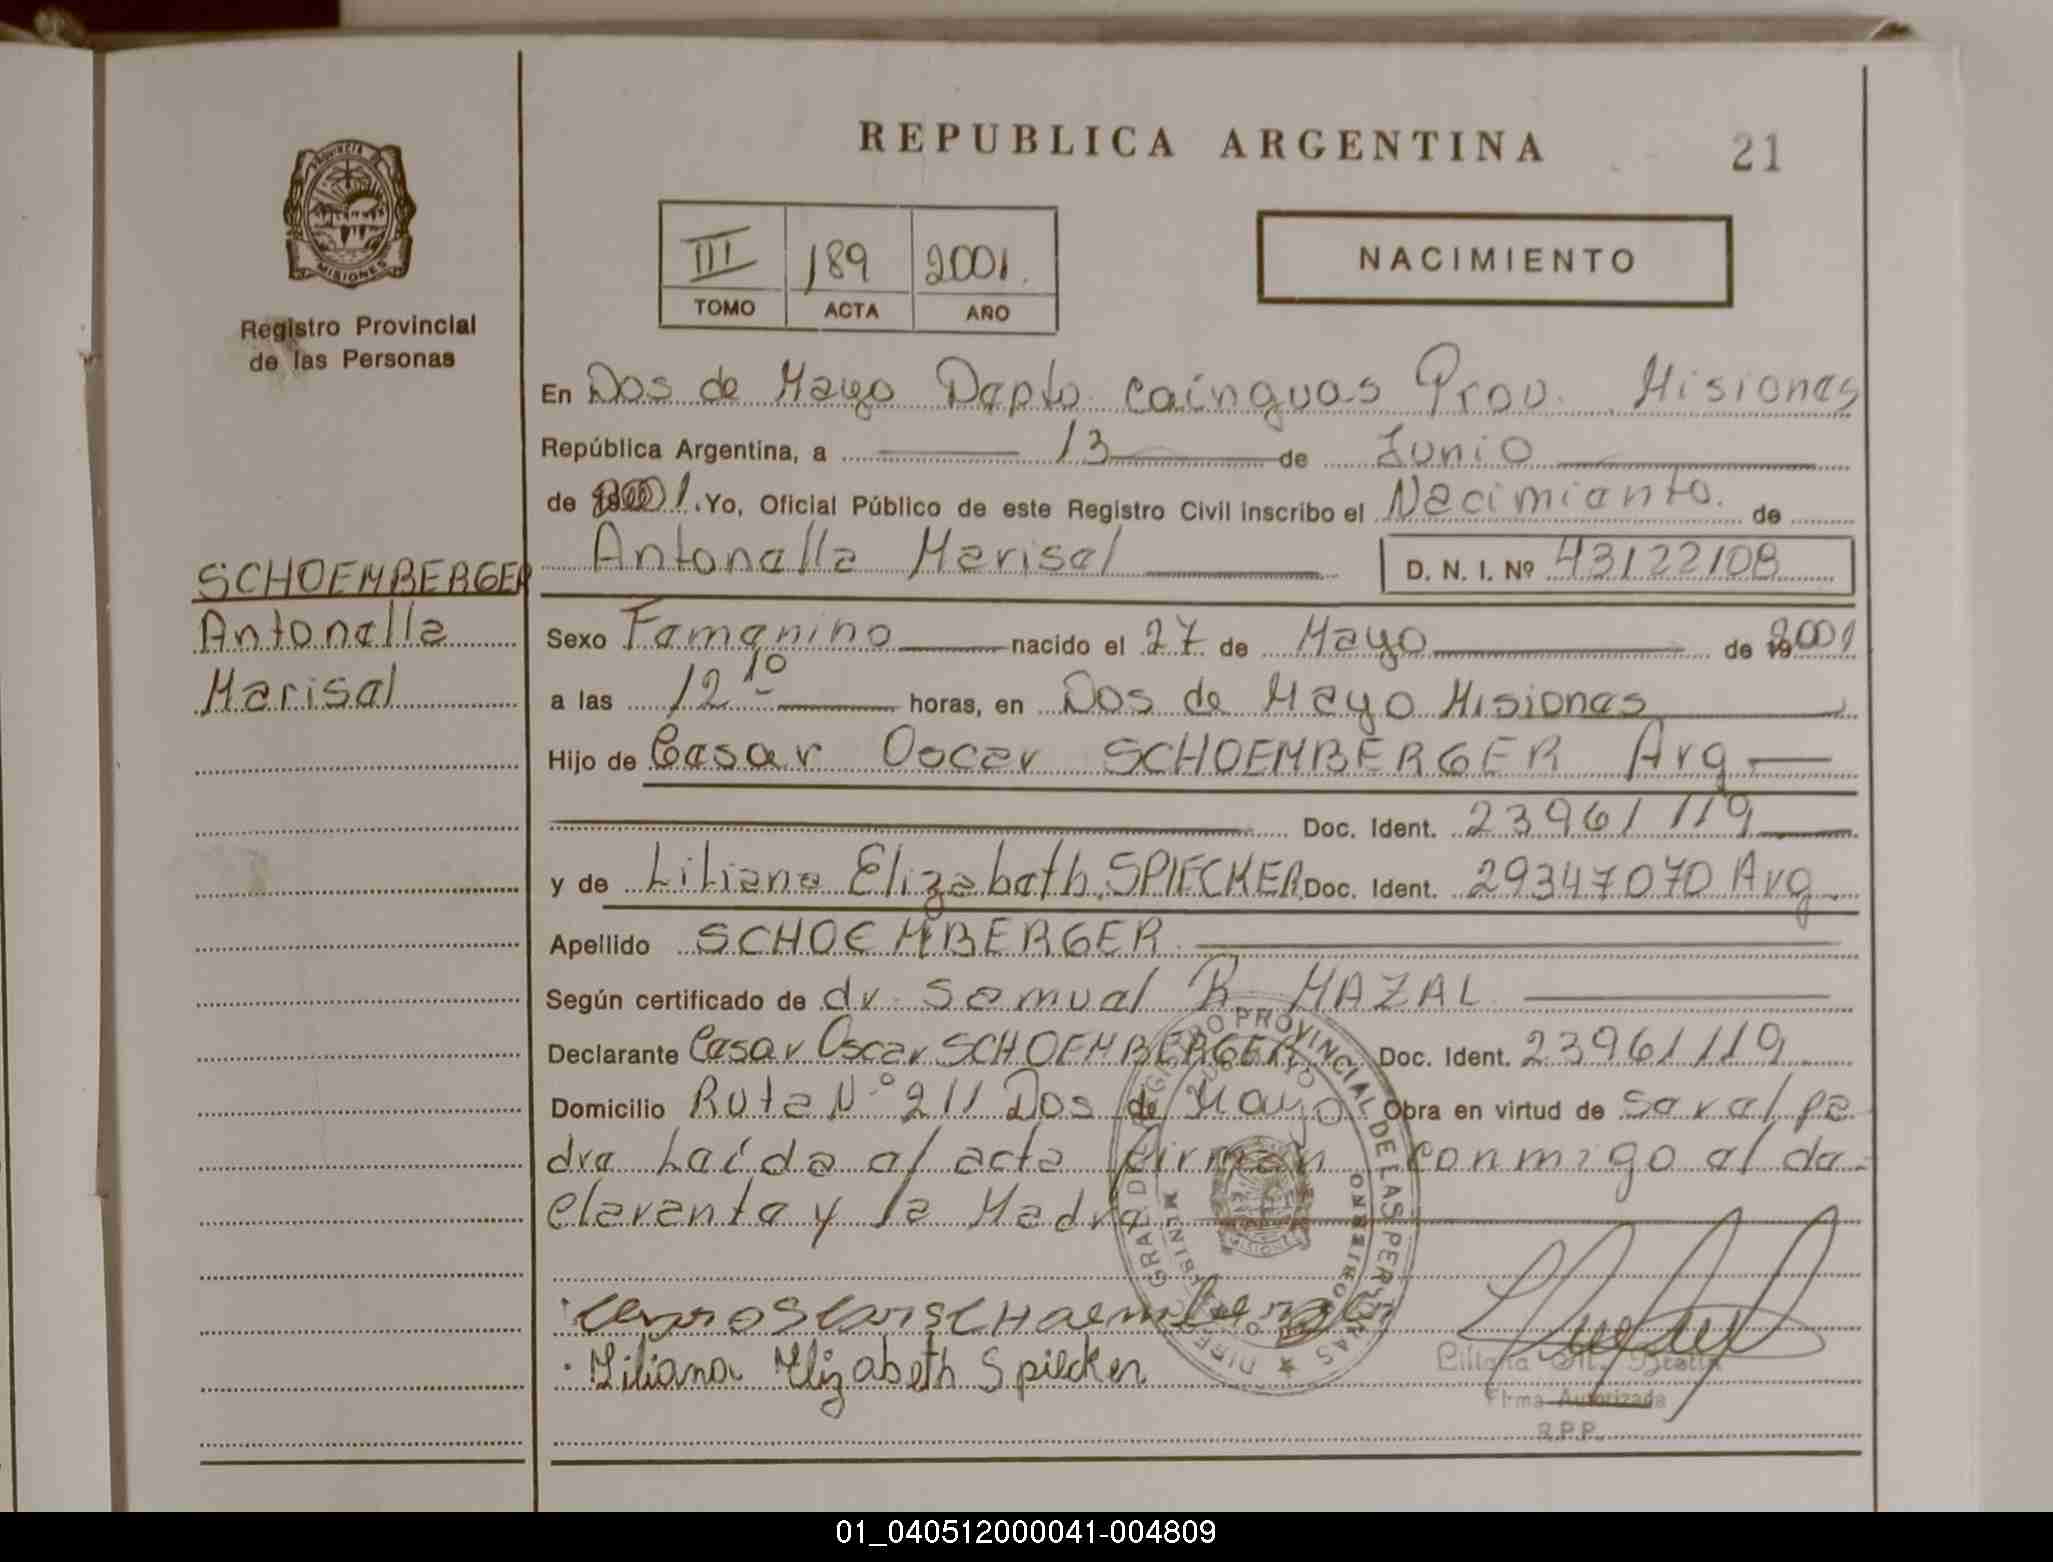 REPUBLICA ARGENTINA
21
PROVINCIA D
MISIONES
Registro Provincial
de las Personas
III 189 2001.
TOMO ACTA AÑO
NACIMIENTO
En Dos de Mayo Depto. Cainguas Prov. Misiones
República Argentina, a 13 de Junio
de 2001. Yo, Oficial Público de este Registro Civil inscribo el Nacimiento. de
Antonella Marisel D. N. I. Nº 43122108
SCHOEMBERGER
Antonella
Marisel
Sexo Femenino nacido el 27 de Mayo de 2001
a las 12 10 horas, en Dos de Mayo Misiones
Hijo de Cesar Oscar SCHOEMBERGER Arg
Doc. Ident. 23961119
y de Liliana Elizabeth SPIECKER Doc. Ident. 29347070 Arg
Apellido SCHOEMBERGER
Según certificado de dr. Samuel R MAZAL
Declarante Cesar Oscar SCHOEMBERGER Doc. Ident. 23961119
Domicilio Ruta Nº 211 Dos de Mayo Obra en virtud de ser el pa
dre Leída el acta firman conmigo el de-
clarante y la Madre
REGISTRO PROVINCIAL DE LAS PERSONAS
MISIONES
Liliana Elizabeth Spiecker
Firma Autorizada
R.P.P.
01_040512000041-004809